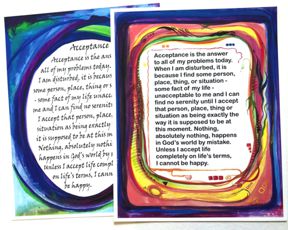 Acceptance
Acceptance is the ans
all of my problems today.
I am disturbed, it is becaus
some person, place, thing or s
- some fact of my life unacc
me and I can find no serenity
I accept that person, place,
situation as being exactly
it is supposed to be at this m
Nothing, absolutely nothi
happens in God's world by
Unless I accept life compl
on life's terms, I canno
be happy.
Acceptance is the answer
to all of my problems today.
When I am disturbed, it is
because I find some person,
place, thing, or situation -
some fact of my life -
unacceptable to me and I can
find no serenity until I accept
that person, place, thing or
situation as being exactly the
way it is supposed to be at
this moment. Nothing,
absolutely nothing, happens
in God's world by mistake.
Unless I accept life
completely on life's terms,
I cannot be happy.